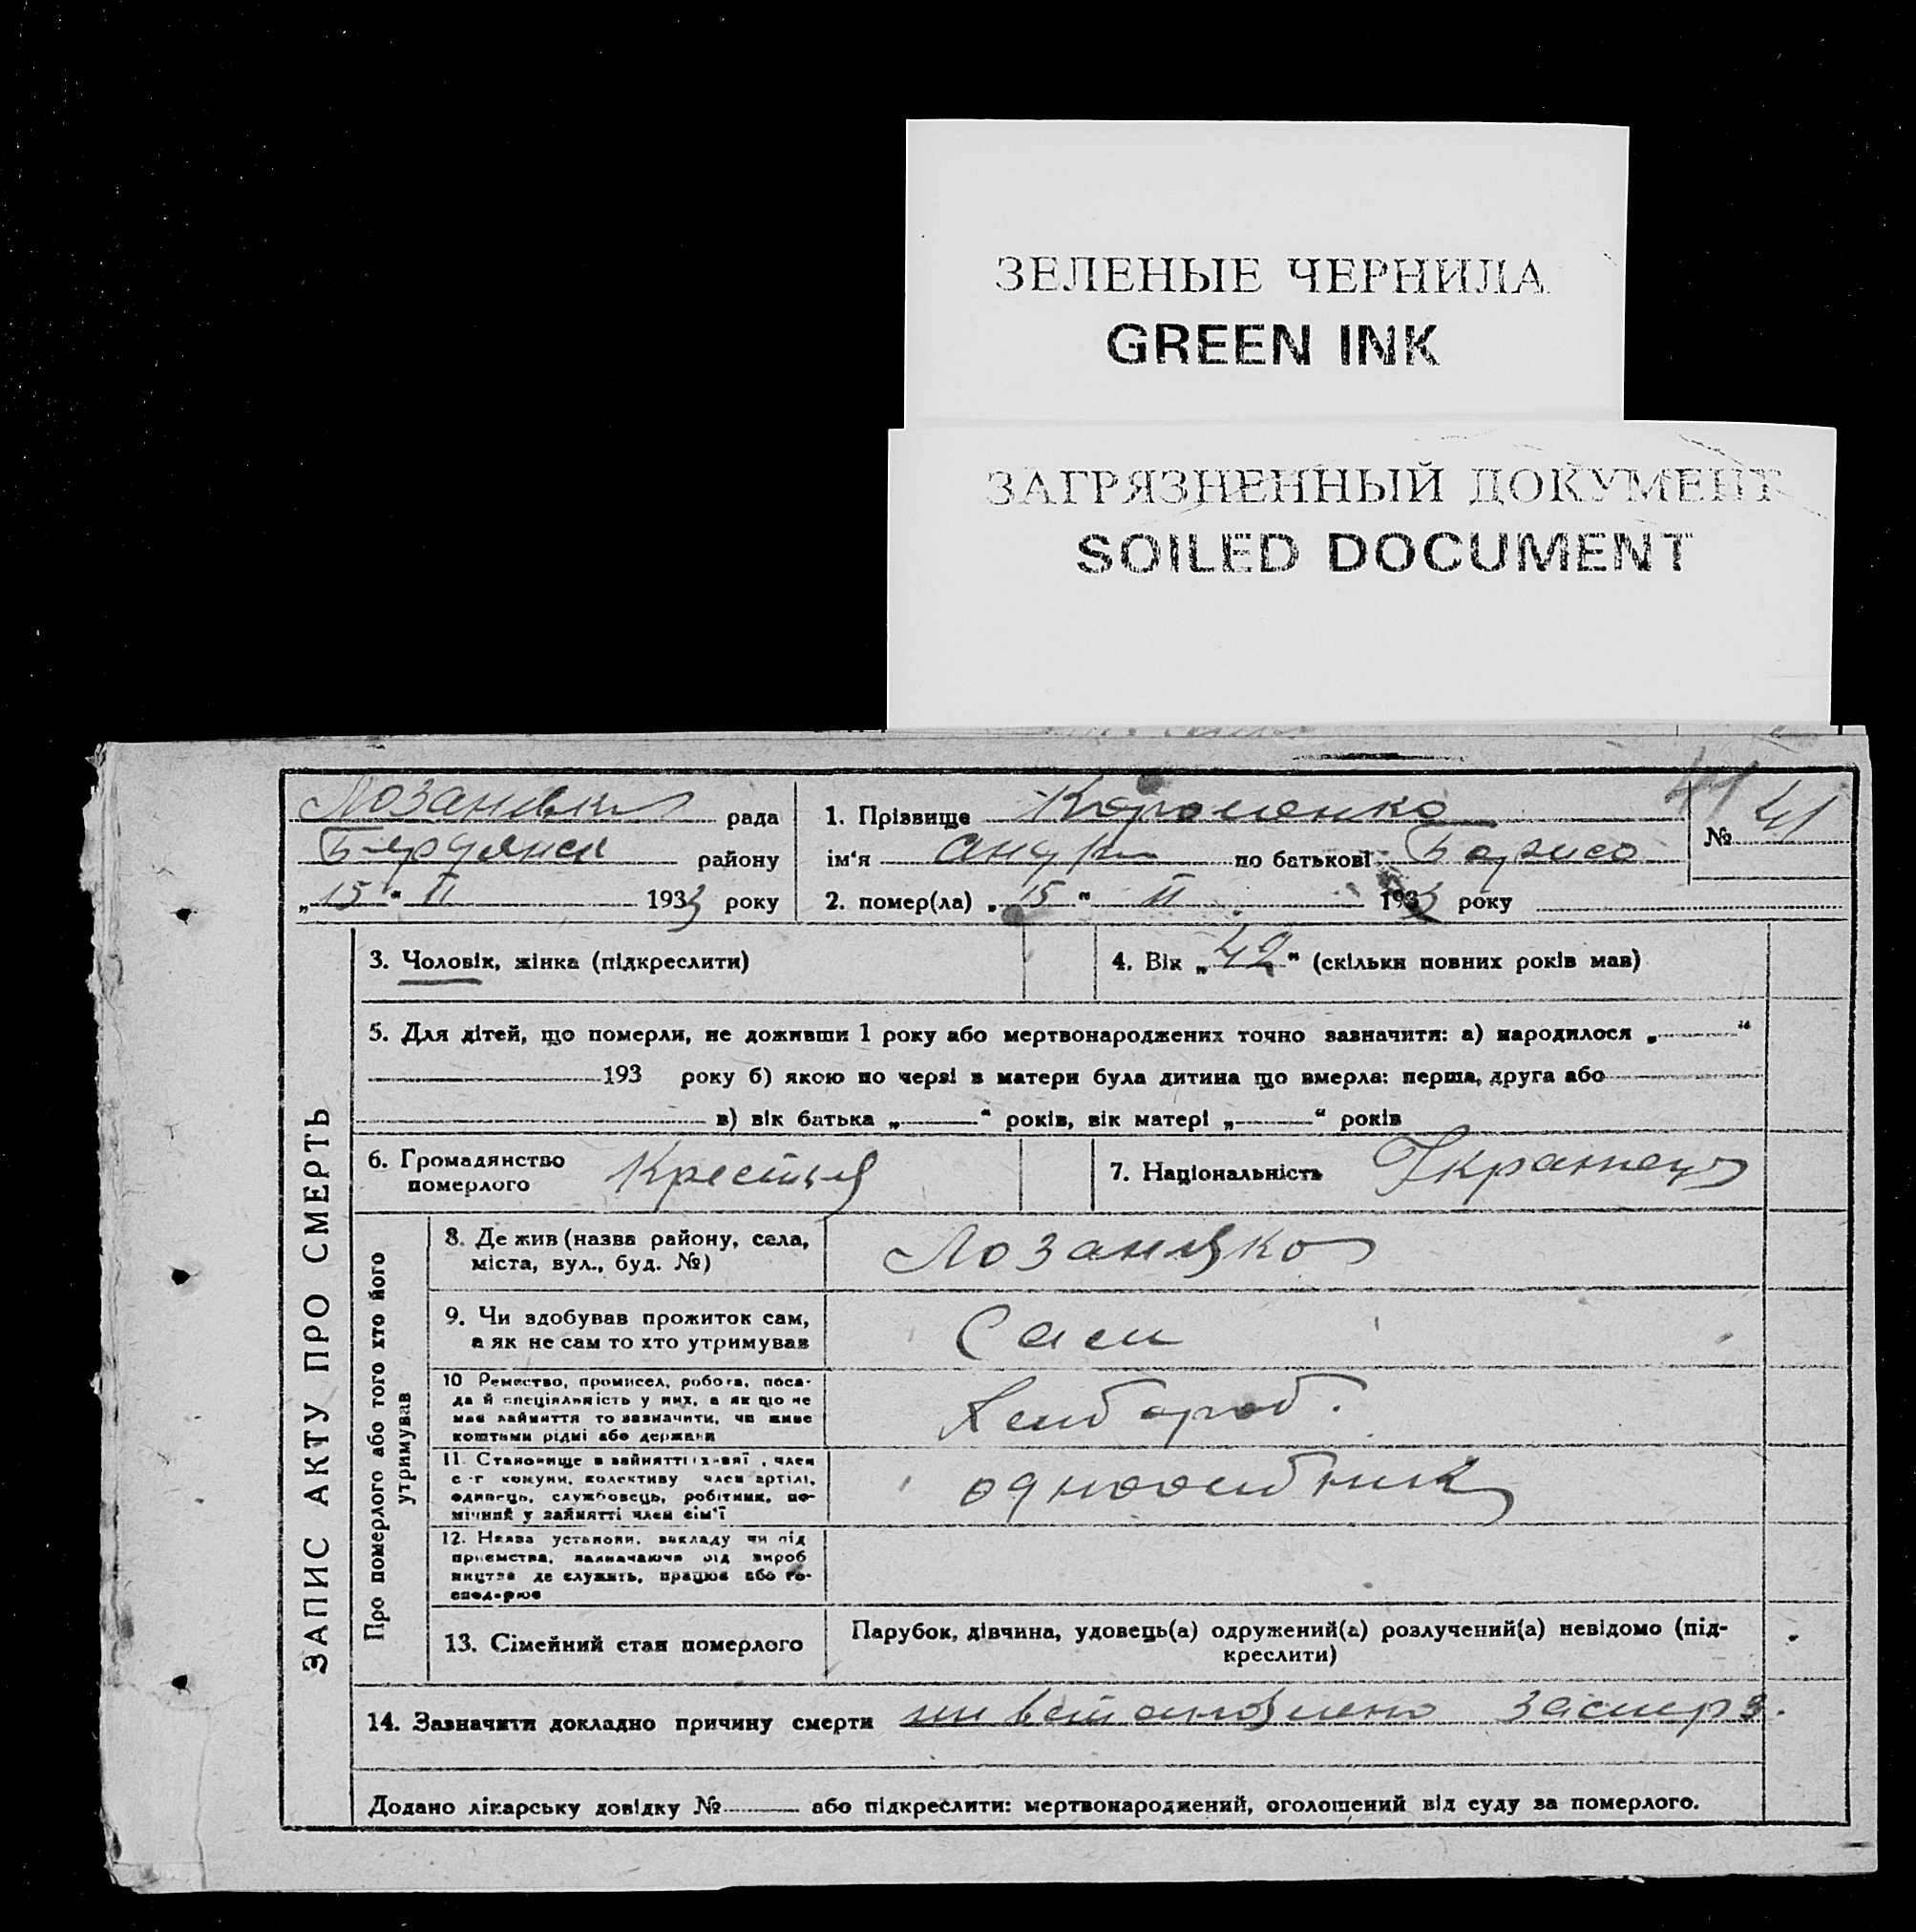 ЗЕЛЕНЫЕ ЧЕРНИЛА
GREEN INK
ЗАГРЯЗНЕННЫЙ ДОКУМЕНТ
SOILED DOCUMENT
41
рада
району
„15“ II 1933 року
1. Прізвище
ім'я по батькові Борисо
№ 41
2. помер(ла) „15“ II 1933 року
ЗАПИС АКТУ ПРО СМЕРТЬ
3. Чоловік, жінка (підкреслити)
4. Вік „42“ (скільки повних років мав)
5. Для дітей, що померли, не доживши 1 року або мертвонароджених точно зазначити: а) народилося „ “
193 року б) якою по черзі в матери була дитина що вмерла: перша, друга або
в) вік батька „ “ років, вік матері „ “ років
6. Громадянство
померлого
7. Національність
Про померлого або того хто його
утримував
8. Де жив (назва району, села,
міста, вул., буд. №)
9. Чи здобував прожиток сам,
а як не сам то хто утримував
Сам
10 Ремество, промисел, робота, поса-
да й спеціяльність у них, а як що не
мав зайняття то зазначити, чи живе
коштами рідні або держави
11. Становище в зайнятті: член
с-г комуни, колективу член артілі,
одинець, службовець, робітник, по-
мічний у зайнятті член сім'ї
одноосибник
12. Назва установи, закладу чи під
приємства, зазначаючи від вироб
ництва де служить, працює або го-
сподарює
13. Сімейний стан померлого
Парубок, дівчина, удовець(а) одружений(а) розлучений(а) невідомо (під-
креслити)
14. Зазначити докладно причину смерти
Додано лікарську довідку № або підкреслити: мертвонароджений, оголошений від суду за померлого.